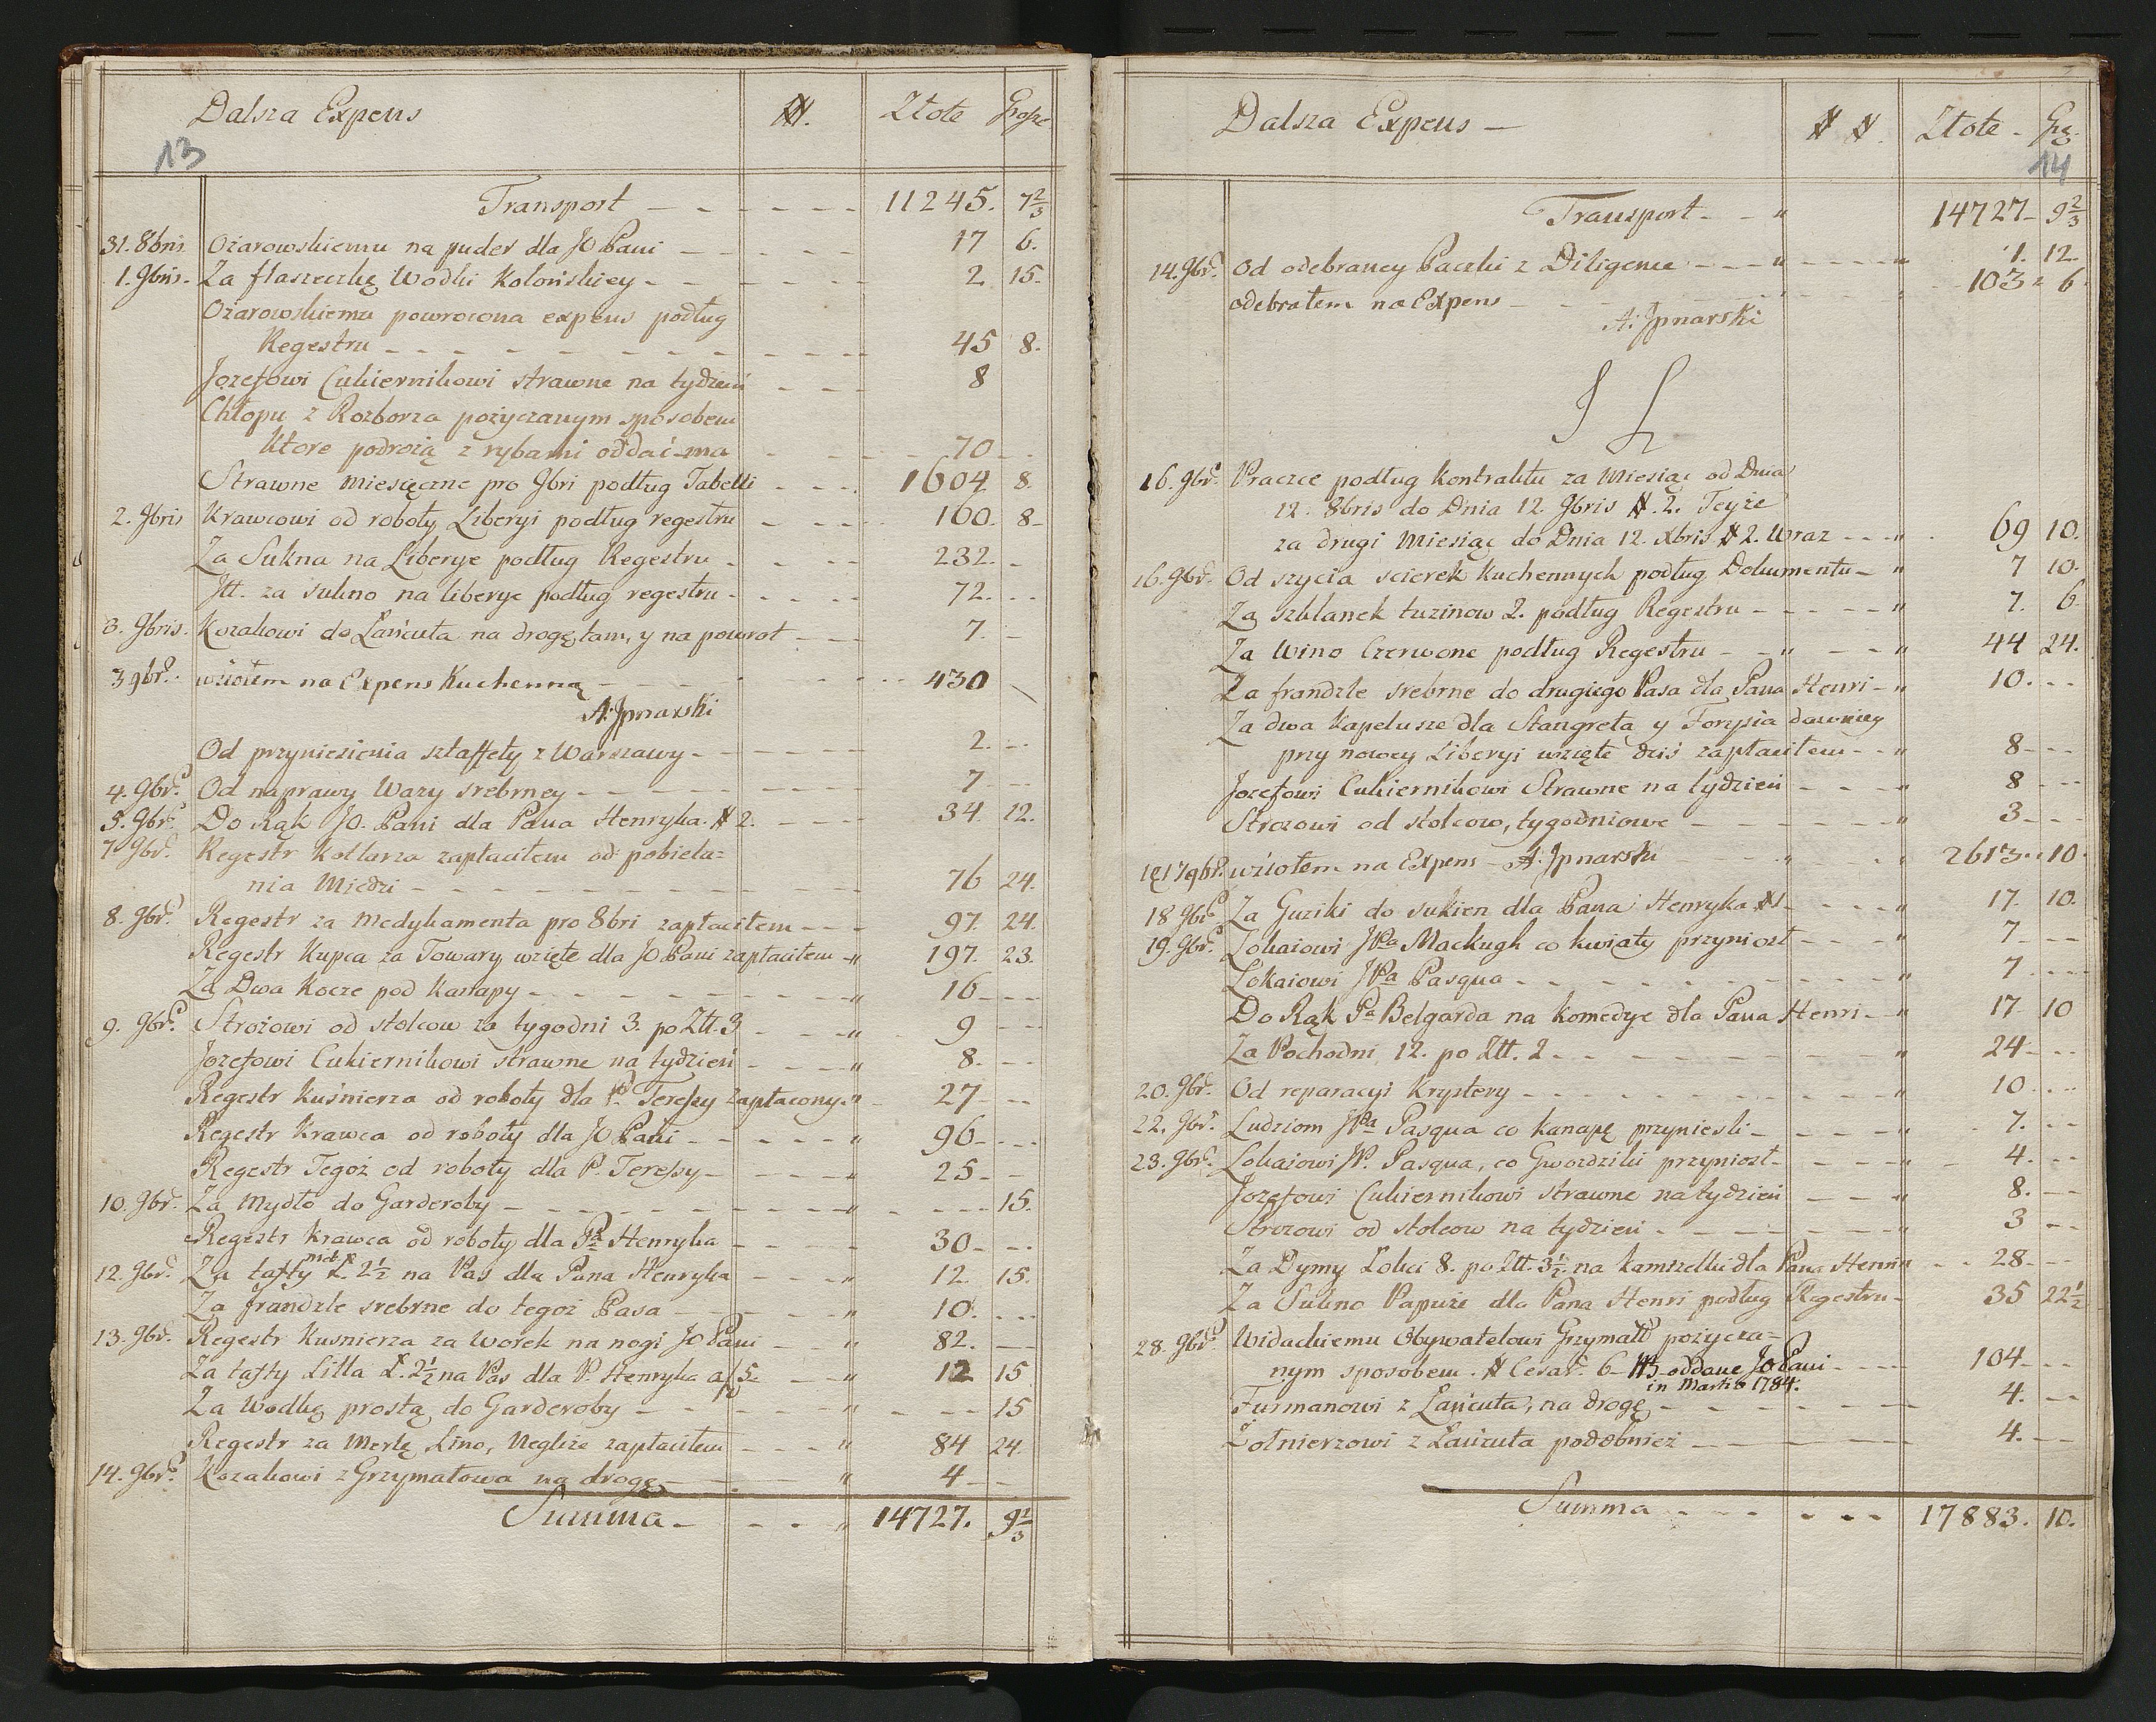 Dalsza Expens # Złote Grosze
13
Transport 11245. 7 2/3
31. 8bris Ożarowskiemu na puder dla JO Pani 17 6.
1. 9bris. Za flaszeczkę Wodki Kolońskiey 2. 15.
Ożarowskiemu powrocona expens podług
Regestru 45 8.
Jozefowi Cukiernikowi strawne na tydzień 8
Chłopu z Rozborza pożyczanym sposobem
Ktore podrożą z rybami oddać ma 70
Strawne Miesięczne pro 9bri podług Tabelli 1604. 8.
2. 9bris Krawcowi od roboty Liberyi podług regestru 160. 8
Za Sukna na Liberye podług Regestru 232.
Itt. za sukno na liberye podług regestru 72.
3. 9bris. Kozakowi do Łańcuta na drogę tam, y na powrot 7.
3 9br. wziołem na Expens Kuchenną 430
A: Jpnarski
Od przyniesienia sztaffety z Warszawy 2.
4. 9br. Od naprawy Wazy srebrney 7
5. 9br. Do Rąk JO. Pani dla Pana Henryka # 2. 34. 12.
7 9br. Regestr Kotlarza zapłaciłem od pobiela=
nia Miedzi 76 24.
8. 9br. Regestr za Medykamenta pro 8bri zapłaciłem 97. 24.
Regestr Kupca za Towary wzięte dla JO Pani zapłaciłem 197. 23.
Za Dwa Kocze pod Kanapy 16
9. 9br. Strożowi od stolcow za tygodni 3. po Ztt. 3 9
Jozefowi Cukiernikowi strawne na tydzień 8.
Regestr Kuśnierza od roboty dla P. Teressy zapłacony 27
Regestr Krawca od roboty dla JO Pani 96
Regestr Tegoż od roboty dla P. Teressy 25
10. 9br. Za Mydło do Garderoby 15.
Regestr Krawca od roboty dla Pa Henryka 30
12. 9br. Za tafty Ł. 2 1/2 na Pas dla Pana Henryka 12 15.
Za frandzle srebrne do tegoż Pasa 10.
13. 9br. Regestr Kusnierza za Worek na nogi JO Pani 82.
Za tafty Lilla Ł. 2 1/2 na Pas dla P. Henryka a 5 12 15
Za Wodkę prostą do Garderoby 15
Regestr za Merlę, Lino, Negliże zapłaciłem 84 24.
14. 9br. Kozakowi z Grzymałowa na drogę 4
Summa 14727. 9 2/3
Dalsza Expens # # Złote Gr.
14
Transport 14727 9 2/3
14. 9br. Od odebraney Paczki z Diligence 1. 12.
odebrałem na Expens 103 6
A: Jpnarski
16. 9br. Praczce podług Kontraktu za Miesiąc od Dnia
12. 8bris do Dnia 12. 9bris # 2. Teyże
za drugi Miesiąc do Dnia 12. Xbris # 2. Wraz 69 10.
16. 9br. Od szycia scierek Kuchennych podług Dokumentu 7 10.
Za szklanek tuzinow 2. podług Regestru 7. 6.
Za Wino Czerwone podług Regestru 44 24.
Za frandzle srebrne do drugiego Pasa dla Pana Henri 10.
Za dwa Kapelusze dla Stangreta y Forysia dawniey
przy nowey Liberyi wzięte dziś zapłaciłem 8
Jozefowi Cukiernikowi Strawne na tydzień 8
Strozowi od stolcow, tygodniowe 3
17 9br. wziołem na Expens A: Jpnarski 2613 10
18 9br. Za Guziki do sukien dla Pana Henryka # 1 17. 10.
19. 9br. Lokaiowi JPa Mackugh co kwiaty przyniosł 7
Lokaiowi JPa Pasqua 7
Do Rąk Pa Belgarda na komedye dla Pana Henri 17. 10
Za Pochodni 12. po Ztt. 2 24
20. 9br. Od reparacyi Krystery 10
22. 9br. Ludziom JPa Pasqua co kanapę przyniesli 7.
23. 9br. Lokaiowi JP. Pasqua, co Gwozdziki przyniosł 4.
Jozefowi Cukiernikowi strawne na tydzień 8.
Strozowi od stolcow na tydzień 3
Za Dymy Łokci 8. po Ztt. 3 1/2. na kamzelki dla Pana Henri 28
Za Sukno Papuże dla Pana Henri podług Regestru 35 22 1/2
28. 9br. Widackiemu Obywatelowi Grzymałd pożycza=
nym sposobem. # Cesar. 6 NB oddane JO Pani 104
in Martio 1784.
Furmanowi z Łańcuta, na drogę 4.
Żołnierzowi z Łańcuta podobnież 4.
Summa 17883. 10.